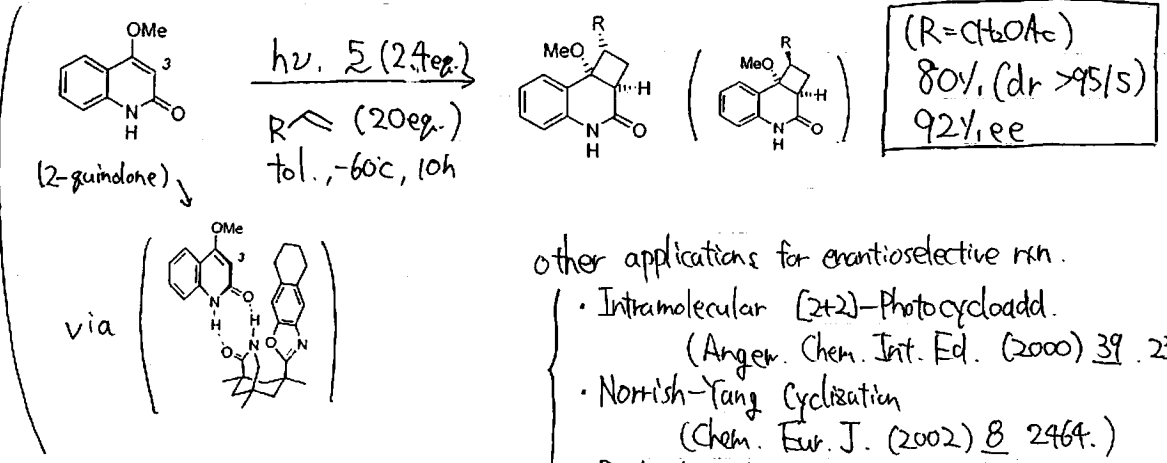 OMe
3
N
H
O
hν, 5 (2.4eq.)
R (20eq.)
tol., -60℃, 10h
(2-quinolone)
R
MeO
H
N
H
O
R
MeO
H
N
H
O
(R=CH₂OAc)
80%, (dr >95/5)
92%, ee
via
OMe
3
N
H
O
H
N
O
O
N
other applications for enantioselective rxn.
・Intramolecular [2+2]-Photocycloadd.
(Angew. Chem. Int. Ed. (2000) 39 .
・Norrish-Yang Cyclization
(Chem. Eur. J. (2002) 8 2464.)